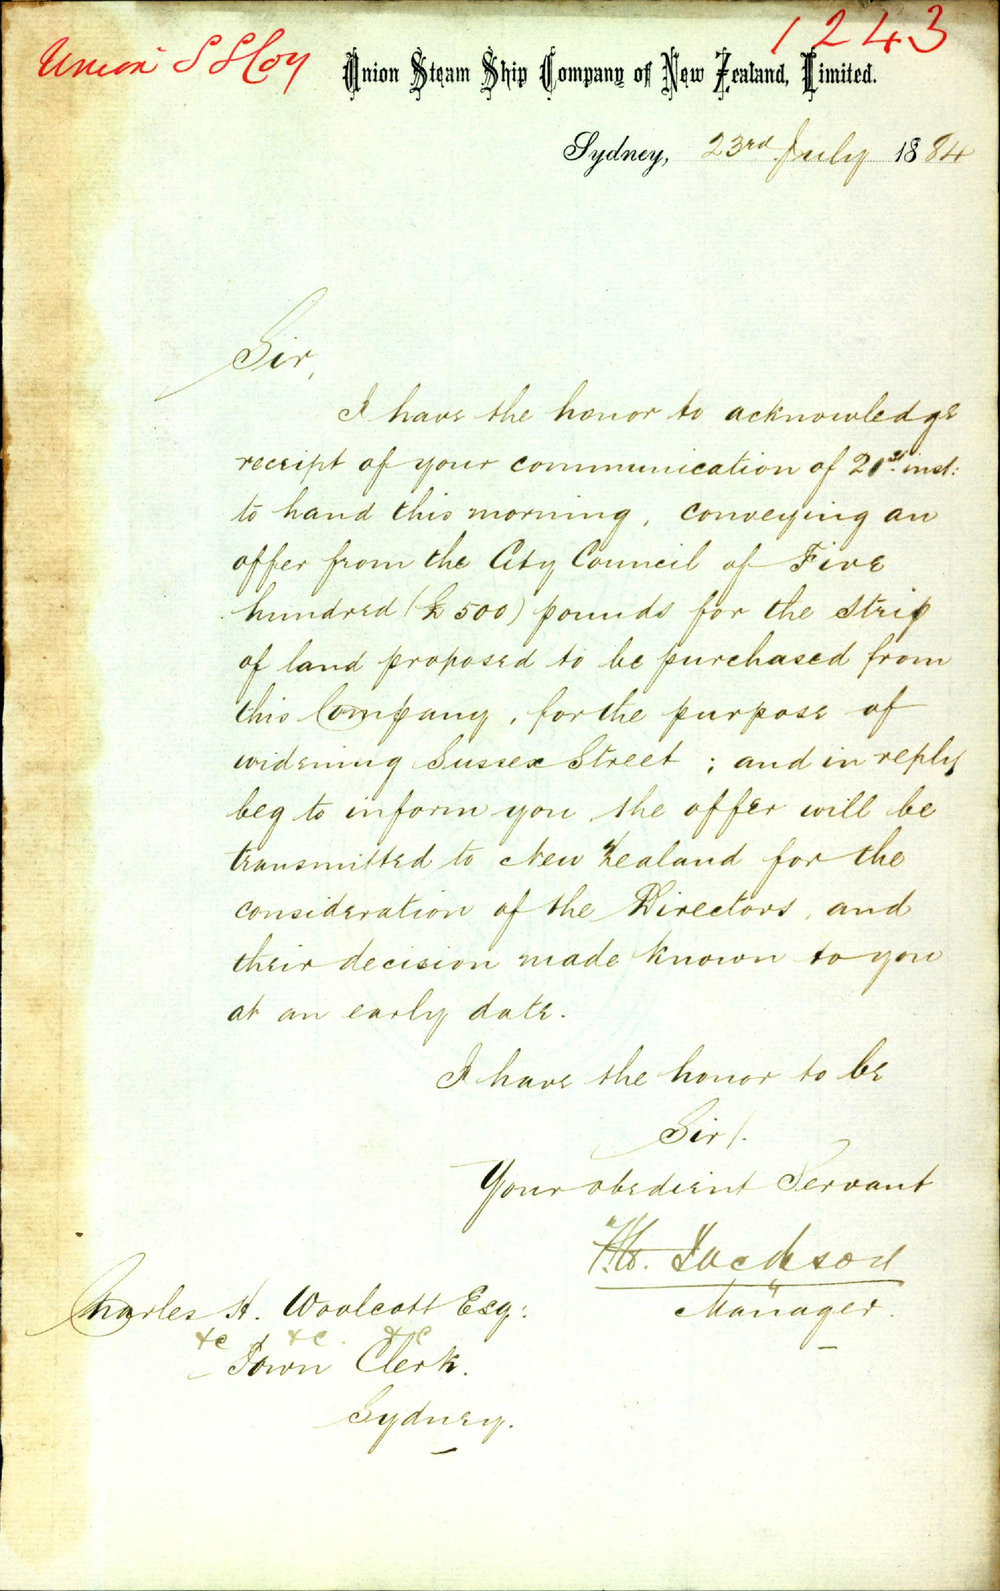 1243
Union S S Coy
Union Steam Ship Company of New Zealand, Limited.
Sydney, 23rd July 1884
Sir,
I have the honor to acknowledge
receipt of your communication of 21st inst:
to hand this morning, conveying an
offer from the City Council of Five
hundred (£500) pounds for the strip
of land proposed to be purchased from
this Company, for the purpose of
widening Sussex Street; and in reply
beg to inform you the offer will be
transmitted to New Zealand for the
consideration of the Directors, and
their decision made known to you
at an early date.
I have the honor to be
Sir/.
Your obedient Servant
Jackson
Manager.
Charles H. Woolcott Esq:
&c &c. &c
Town Clerk.
Sydney.